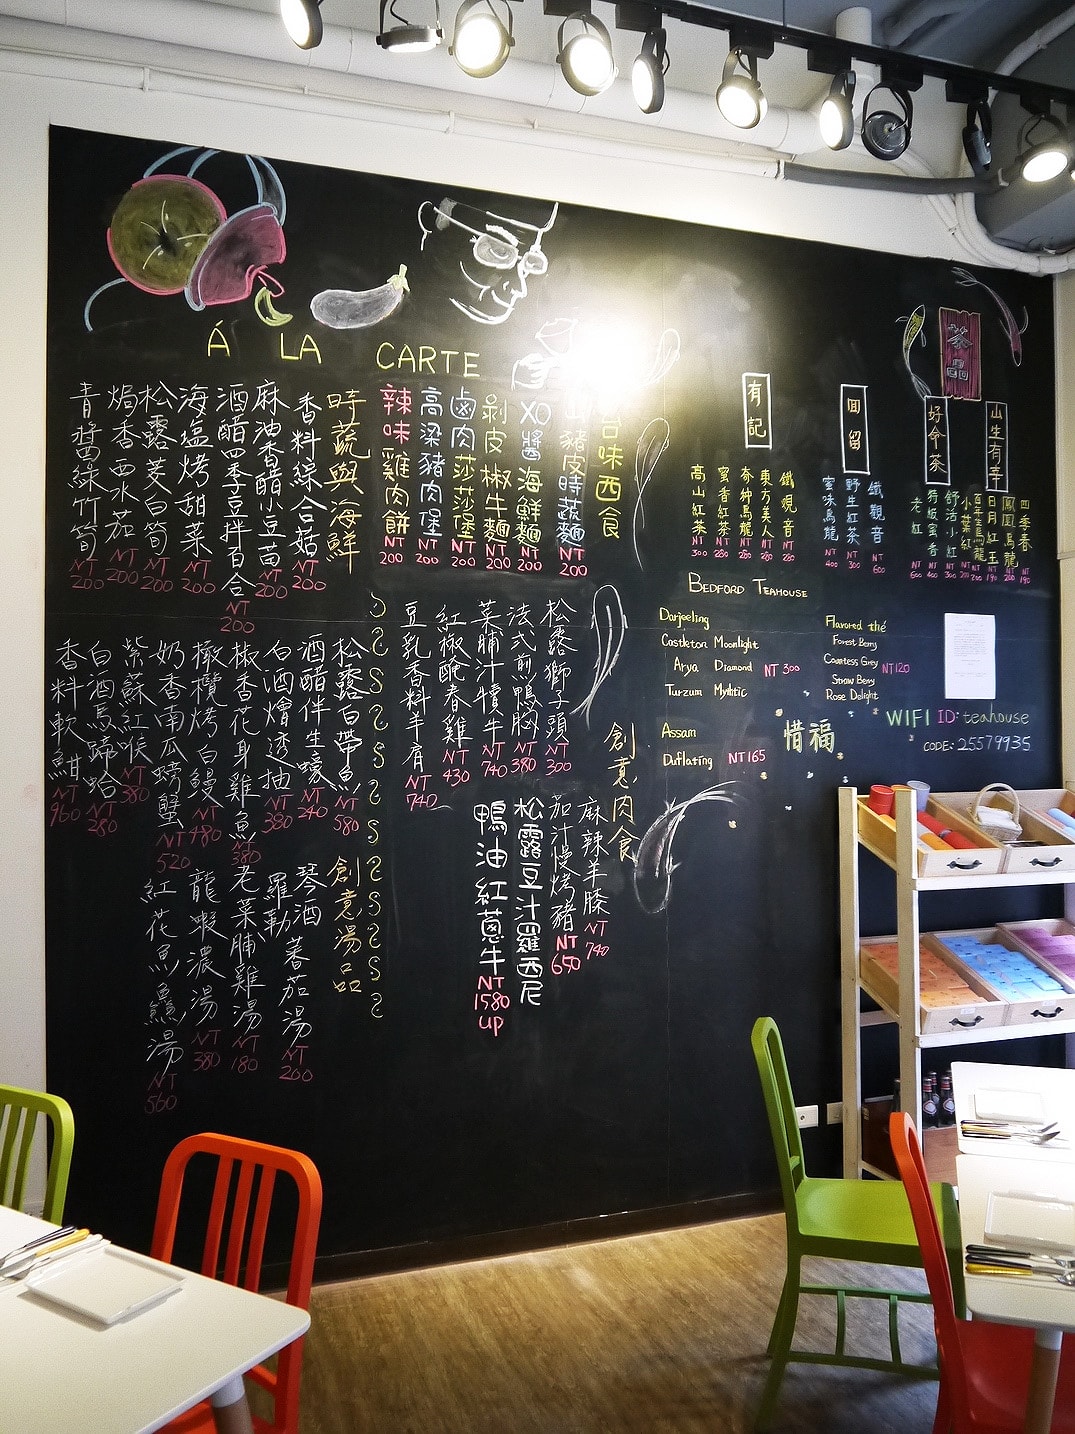 Á LA CARTE
時蔬與海鮮
香料綜合菇 NT 200
麻油香醋小豆苗 NT 200
酒醋四季豆拌百合 NT 200
海塩烤甜菜 NT 200
松露茭白筍 NT 200
焗香西水茄 NT 200
青醬綠竹筍 NT 200
松露白帶魚 NT 580
酒醋伴生蠔 NT 240
白酒燴透抽 NT 380
椒香花身雞魚 NT 380
橄欖烤白鰻 NT 480
奶香南瓜螃蟹 NT 520
紫蘇紅喉 NT 380
白酒蒸蹄蛤 NT 280
香料軟鮭 NT 960
創意湯品
琴酒羅勒蕃茄湯 NT 200
老菜脯雞湯 NT 180
龍蝦濃湯 NT 380
紅花魚鱻湯 NT 560
台味西食
豬皮時蔬麵 NT 200
XO醬海鮮麵 NT 200
剝皮椒牛麵 NT 200
鹵肉莎莎堡 NT 200
高梁豬肉堡 NT 200
辣味雞肉餅 NT 200
創意肉食
松露獅子頭 NT 300
法式煎鴨胸 NT 380
菜脯汁犢牛 NT 740
紅椒醃春雞 NT 430
豆乳香料羊肩 NT 740
麻辣羊膝 NT 740
茄汁慢烤豬 NT 650
松露豆汁羅西尼
鴨油紅蔥牛 NT 1580 up
茶品
山生有幸
四季春 NT 190
鳳凰烏龍 NT 200
百年烏龍 NT 200
日月紅玉 NT 190
小葉紅 NT 200
好命茶
舒活小紅 NT 300
特級蜜香 NT 400
老紅 NT 600
回留
鐵觀音 NT 600
野生紅茶 NT 300
蜜味烏龍 NT 400
有記
鐵觀音 NT 280
東方美人 NT 280
奇种烏龍 NT 280
蜜香紅茶 NT 280
高山紅茶 NT 300
BEDFORD TEAHOUSE
Darjeeling
Castleton Moonlight
Arya Diamond NT 300
Turzum Mythtic
Assam
Duflating NT165
Flavored thé
Forest Berry
Countess Grey NT120
Straw Berry
Rose Delight
惜福
WIFI ID: teahouse
CODE: 25579935